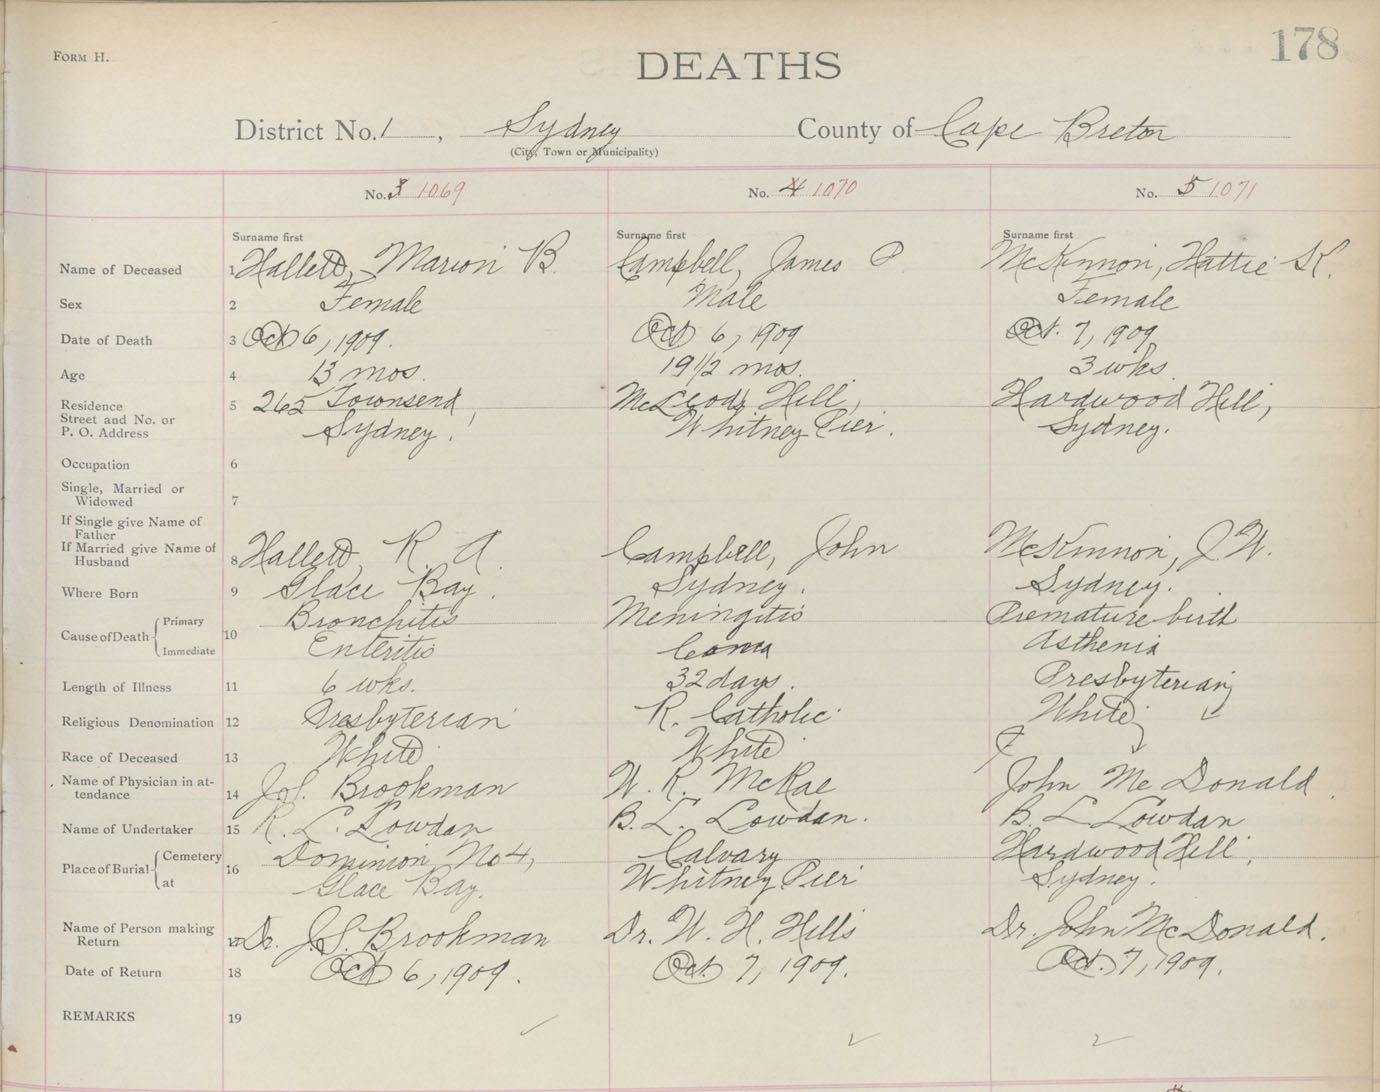 178
FORM H.
DEATHS
District No. 1, Sydney County of Cape Breton
(City, Town or Municipality)
No. 3 1069 No. 4 1070 No. 5 1071
Surname first Surname first Surname first
Name of Deceased 1 Hallett, Marion B. Campbell, James P McKinnon, Hattie K.
Sex 2 Female Male Female
Date of Death 3 Oct 6, 1909. Oct 6, 1909 Oct. 7, 1909
Age 4 13 mos. 19 1/2 mos. 3 wks
Residence 5 265 Townsend, McLeods Hill, Hardwood Hill,
Street and No. or
P. O. Address Sydney. Whitney Pier. Sydney.
Occupation 6
Single, Married or
Widowed 7
If Single give Name of
Father
If Married give Name of
Husband 8 Hallett, R. A. Campbell, John McKinnon, J. W.
Where Born 9 Glace Bay. Sydney. Sydney.
Cause of Death Primary 10 Bronchitis Meningitis Premature birth
Immediate Enteritis Coma Asthenia
Length of Illness 11 6 wks. 32 days. Presbyterian
Religious Denomination 12 Presbyterian R. Catholic White
Race of Deceased 13 White White
Name of Physician in at-
tendance 14 J.S. Brookman W. R. McRae John McDonald.
Name of Undertaker 15 R. L. Lowdan B. L. Lowdan. B. L Lowdan
Place of Burial Cemetery 16 Dominion No 4, Calvary Hardwood Hill,
at Glace Bay. Whitney Pier Sydney.
Name of Person making
Return 17 Dr. J.S. Brookman Dr. W. H. Hills Dr. John McDonald.
Date of Return 18 Oct 6, 1909. Oct. 7, 1909. Oct. 7, 1909.
REMARKS 19